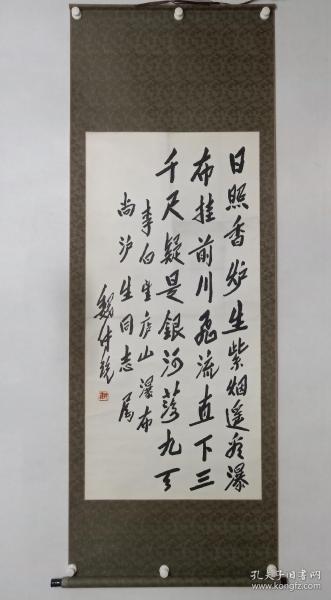 日照香炉生紫烟遥看瀑
布挂前川飞流直下三
千尺疑是銀河落九天
李白望庐山瀑布
尚沪生同志属
魏传统
孔夫子旧书网